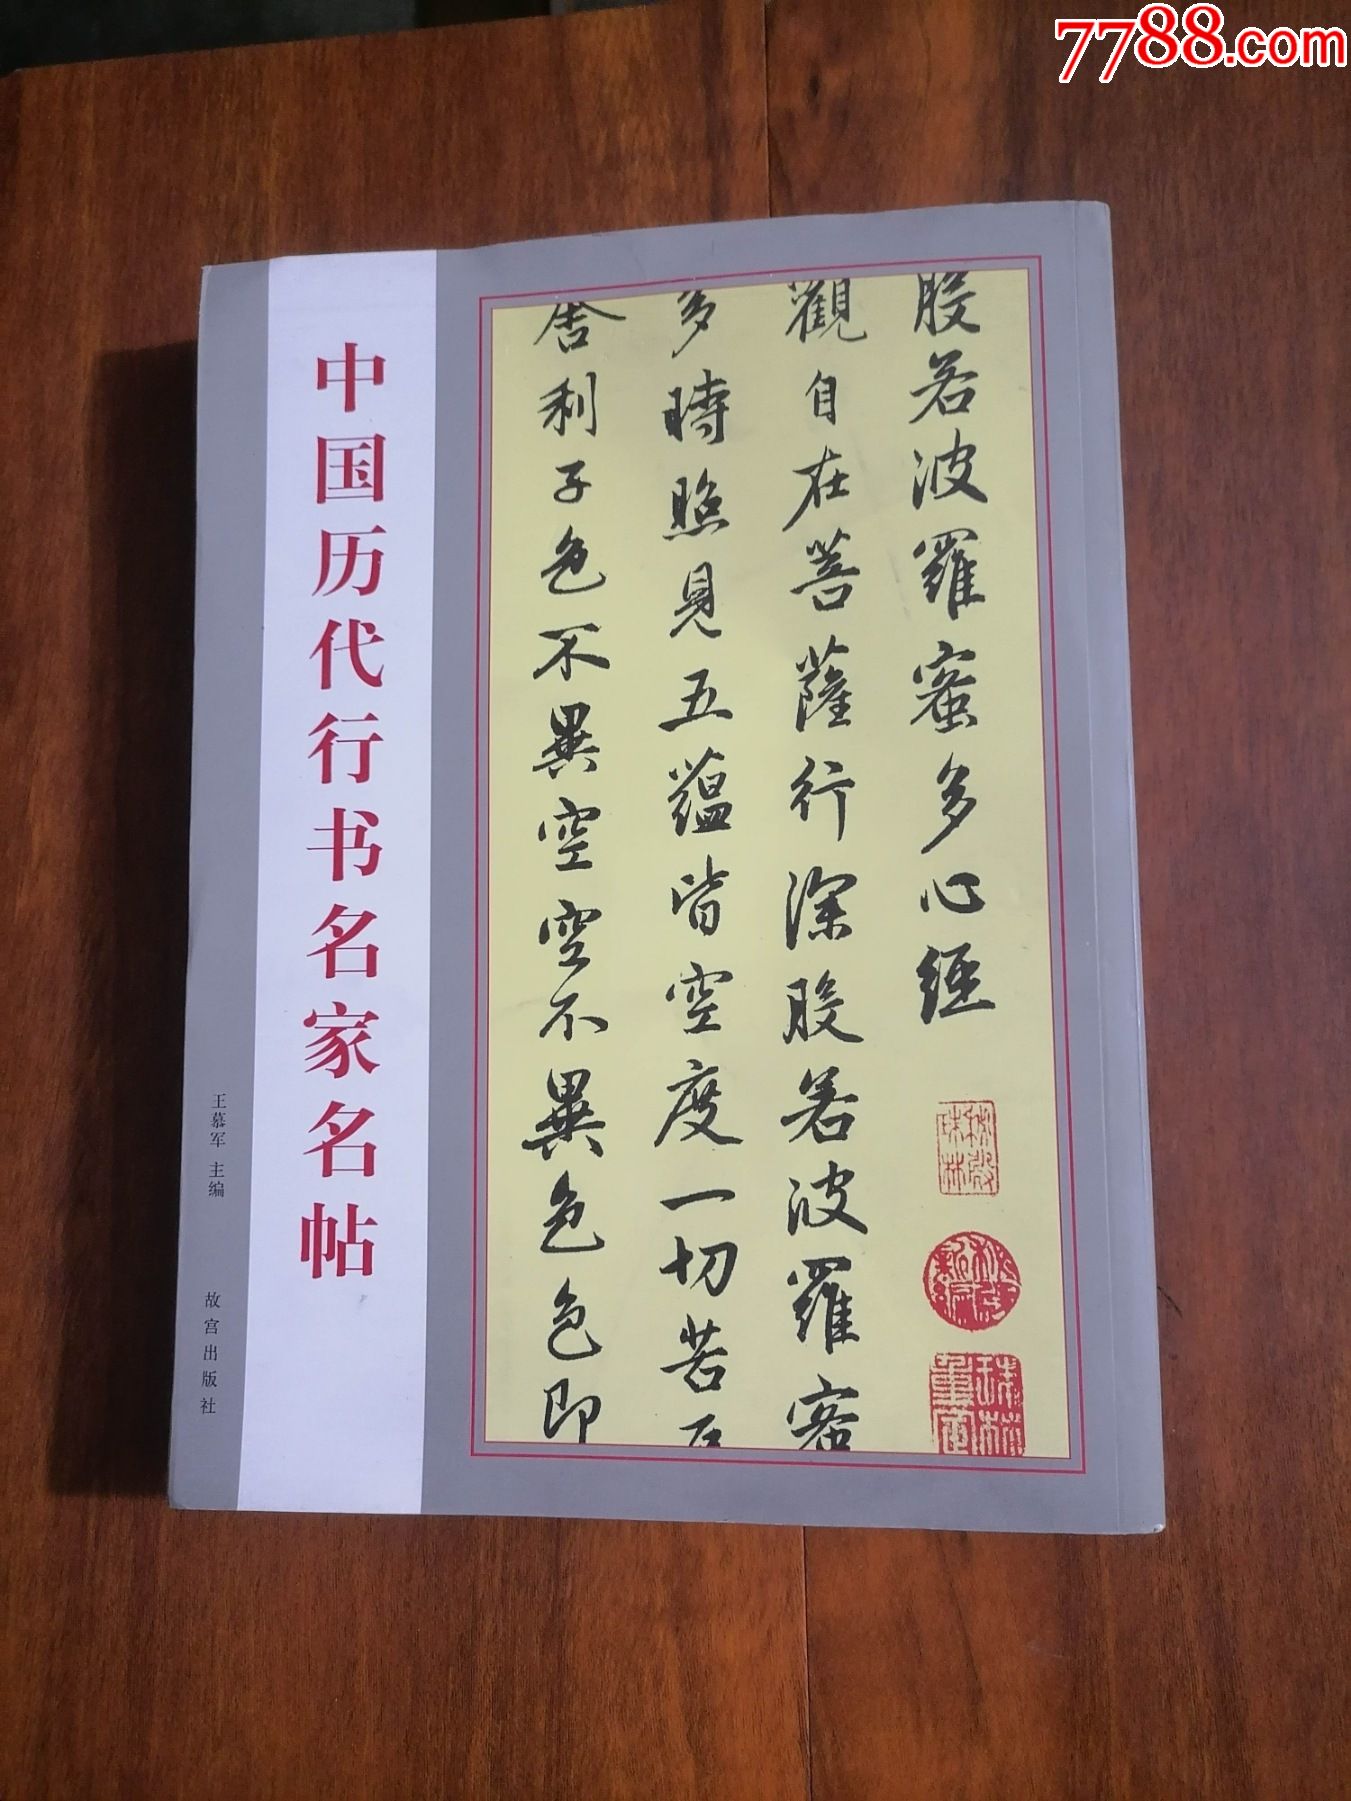 7788.com
中国历代行书名家名帖
王慕军 主编
故宫出版社
般若波羅蜜多心經
觀自在菩薩行深般若波羅蜜
多時照見五蘊皆空度一切苦厄
舍利子色不異空空不異色色即